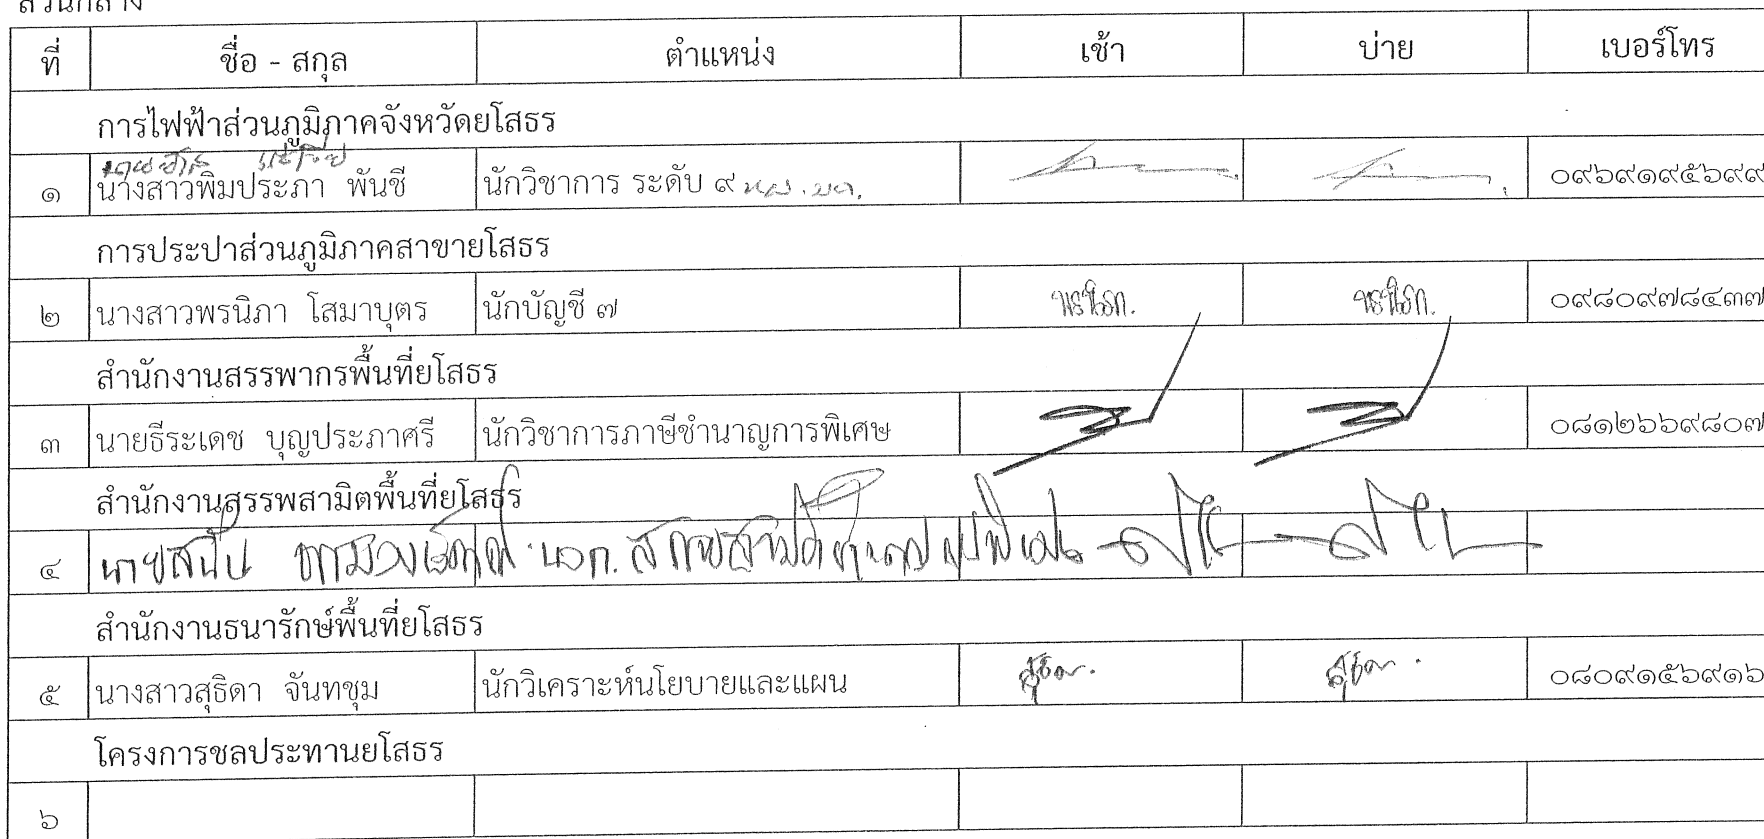 ส่วนกลาง
ที่ ชื่อ - สกุล ตำแหน่ง เช้า บ่าย เบอร์โทร
การไฟฟ้าส่วนภูมิภาคจังหวัดยโสธร
๑ นางสาวพิมประภา พันชี นักวิชาการ ระดับ ๙ ๐๙๖๙๑๙๕๖๙๙
การประปาส่วนภูมิภาคสาขายโสธร
๒ นางสาวพรนิภา โสมาบุตร นักบัญชี ๗ พรนิภา. พรนิภา. ๐๙๘๐๙๗๘๔๓๗
สำนักงานสรรพากรพื้นที่ยโสธร
๓ นายธีระเดช บุญประภาศรี นักวิชาการภาษีชำนาญการพิเศษ ๐๘๑๒๖๖๙๘๐๗
สำนักงานสรรพสามิตพื้นที่ยโสธร
๔ นายสนั่น
สำนักงานธนารักษ์พื้นที่ยโสธร
๕ นางสาวสุธิดา จันทชุม นักวิเคราะห์นโยบายและแผน สุธิดา. สุธิดา. ๐๘๐๙๑๕๖๙๑๖
โครงการชลประทานยโสธร
๖